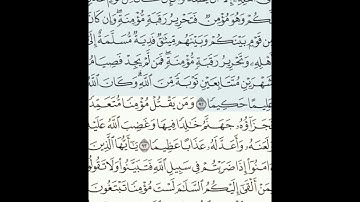 لَّكُمْ وَهُوَ مُؤْمِنٌ فَتَحْرِيرُ رَقَبَةٍ مُّؤْمِنَةٍ وَإِن كَانَ
مِن قَوْمٍ بَيْنَكُمْ وَبَيْنَهُم مِّيثَاقٌ فَدِيَةٌ مُّسَلَّمَةٌ إِلَىٰ
أَهْلِهِ وَتَحْرِيرُ رَقَبَةٍ مُّؤْمِنَةٍ فَمَن لَّمْ يَجِدْ فَصِيَامُ
شَهْرَيْنِ مُتَتَابِعَيْنِ تَوْبَةً مِّنَ اللَّهِ وَكَانَ اللَّهُ
عَلِيمًا حَكِيمًا ٩٢ وَمَن يَقْتُلْ مُؤْمِنًا مُّتَعَمِّدًا
فَجَزَاؤُهُ جَهَنَّمُ خَالِدًا فِيهَا وَغَضِبَ اللَّهُ عَلَيْهِ
وَلَعَنَهُ وَأَعَدَّ لَهُ عَذَابًا عَظِيمًا ٩٣ يَا أَيُّهَا الَّذِينَ
آمَنُوا إِذَا ضَرَبْتُمْ فِي سَبِيلِ اللَّهِ فَتَبَيَّنُوا وَلَا تَقُولُوا
لِمَنْ أَلْقَىٰ إِلَيْكُمُ السَّلَامَ لَسْتَ مُؤْمِنًا تَبْتَغُونَ